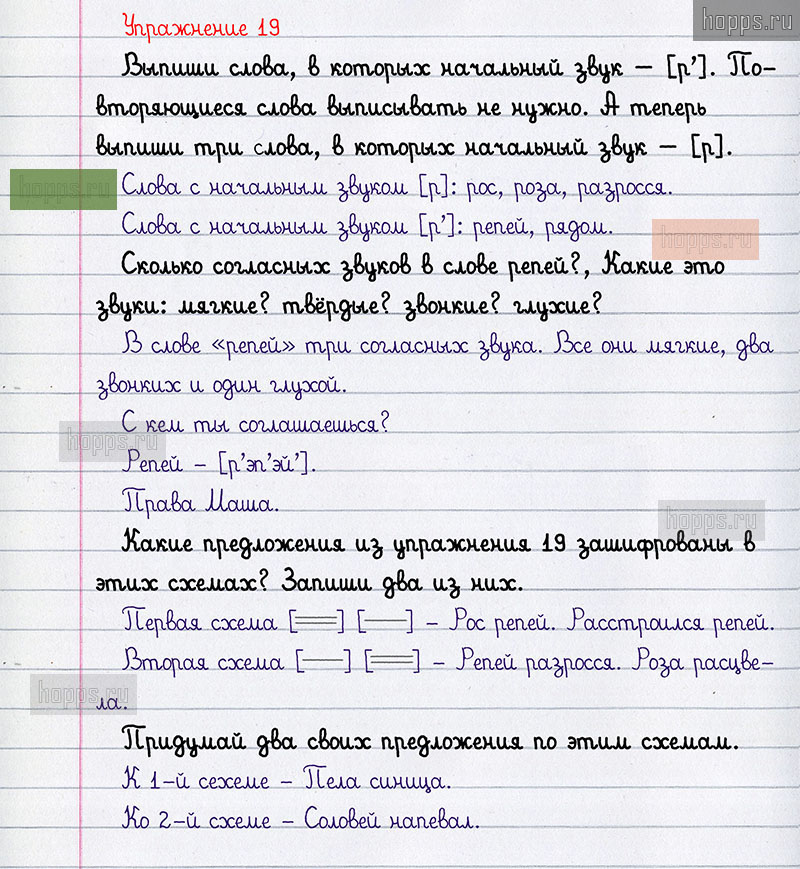 Упражнение 19
hopps.ru
Выпиши слова, в которых начальный звук – [р’]. По-
вторяющиеся слова выписывать не нужно. А теперь
выпиши три слова, в которых начальный звук – [р].
hopps.ru
Слова с начальным звуком [р]: рос, роза, разросся.
Слова с начальным звуком [р’]: репей, рядом.
hopps.ru
Сколько согласных звуков в слове репей?, Какие это
звуки: мягкие? твёрдые? звонкие? глухие?
В слове «репей» три согласных звука. Все они мягкие, два
звонких и один глухой.
С кем ты соглашаешься?
hopps.ru
Репей – [р’эп’эй’].
Права Маша.
hopps.ru
Какие предложения из упражнения 19 зашифрованы в
этих схемах? Запиши два из них.
Первая схема [═══] [───] – Рос репей. Расстроился репей.
Вторая схема [───] [═══] – Репей разросся. Роза расцве-
hopps.ru
ла.
Придумай два своих предложения по этим схемам.
К 1-й сехеме – Пела синица.
Ко 2-й схеме – Соловей напевал.